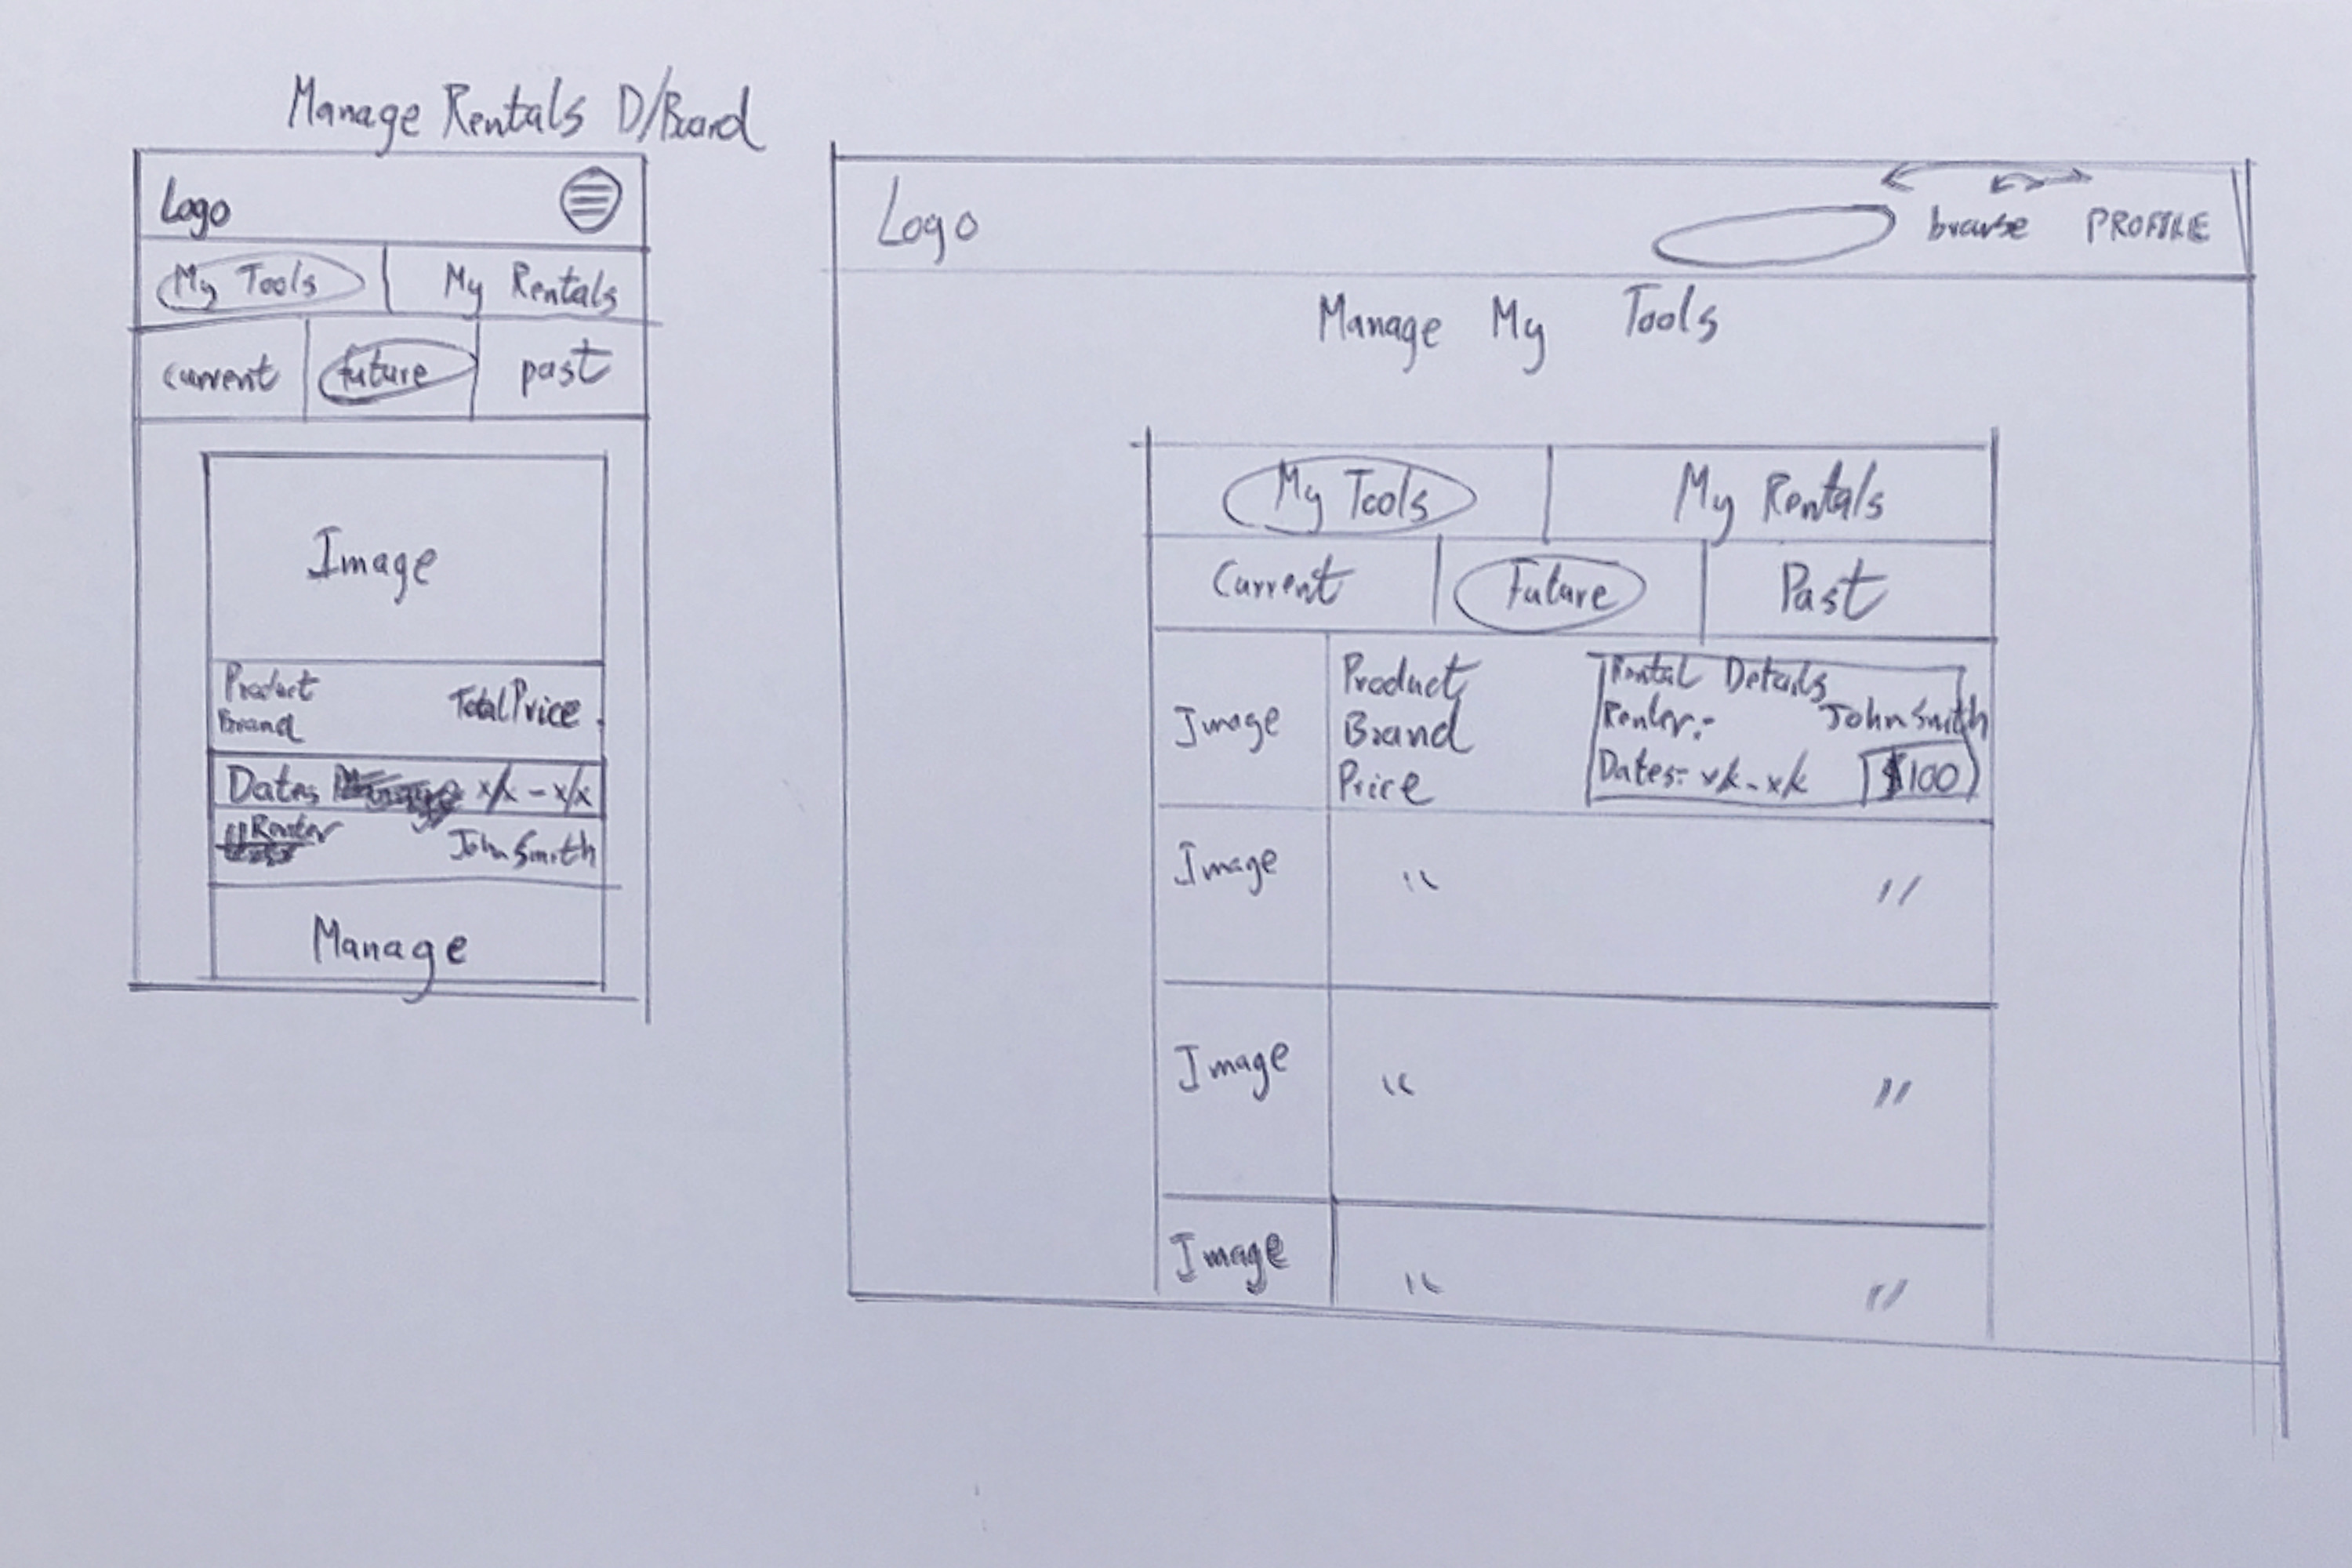 Manage Rentals D/Board
Logo
My Tools My Rentals
current future past
Image
Product
Brand
Total Price
Dates x/x - x/x
Renter John Smith
Manage
Logo browse PROFILE
Manage My Tools
My Tools My Rentals
Current Future Past
Image
Product
Brand
Price
Rental Details
Renter:- John Smith
Dates:- x/x - x/x $100
Image " "
Image " "
Image " "